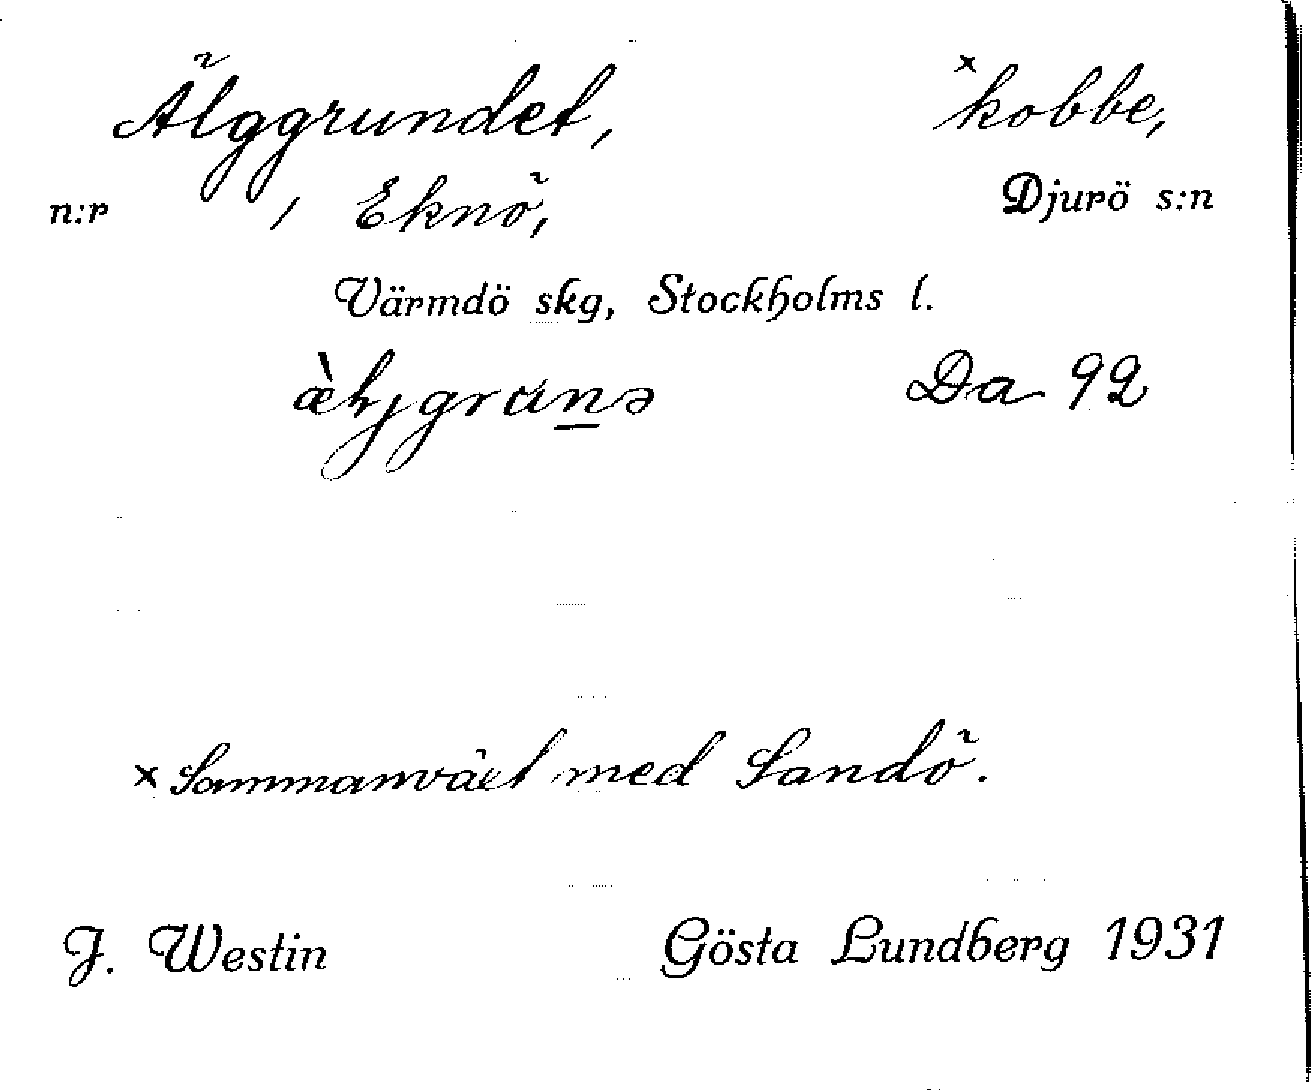 Älggrundet, ×kobbe,
n:r / Eknö, Djurö s:n
Värmdö skg, Stockholms l.
Da 92
×Sammanväxt med Sandö.
J. Westin Gösta Lundberg 1931